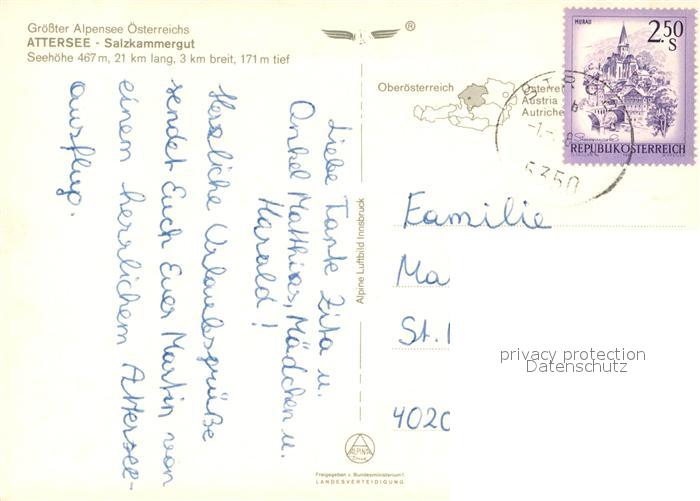 Größter Alpensee Österreichs
ATTERSEE - Salzkammergut
Seehöhe 467 m, 21 km lang, 3 km breit, 171 m tief
®
Liebe Tante Zita u.
Onkel Matthias, Mädchen u.
Harald!
Herzliche Urlaubsgrüße
sendet Euch Euer Martin von
einem herrlichem Attersee-
ausflug.
Alpine Luftbild Innsbruck
ALPINA
Druck
Freigegeben v. Bundesministerium f.
LANDESVERTEIDIGUNG
Oberösterreich
Österrei
Austria
Autriche
MURAU
2.50
S
REPUBLIK ÖSTERREICH
5350
Familie
Ma
St.
4020
privacy protection
Datenschutz